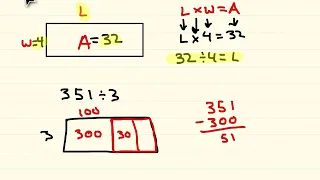 L
L x W = A
W=4
A = 32
L x 4 = 32
32 ÷ 4 = L
351 ÷ 3
100
3
300
30
351
- 300
51